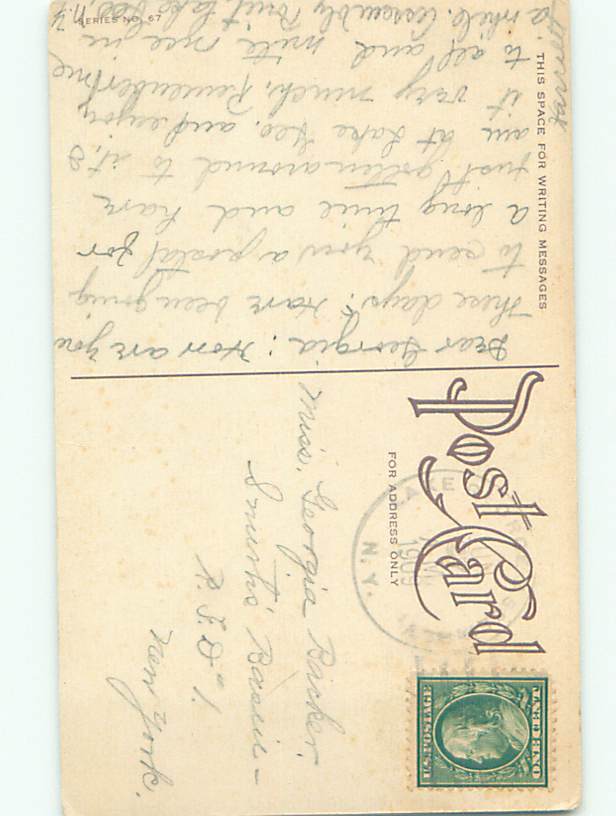 POST CARD
THIS SPACE FOR WRITING MESSAGES
FOR ADDRESS ONLY
SERIES NO. 67
LAKE
N.Y.
1909
ONE CENT
U.S. POSTAGE
Dear Georgia: How are you
these days? Have been going
to send you a postal for
a long time and have
just gotten around to it, I
am at Lake Geo. and enjoy
it very much. Remember me
to all and write once in
a while. Lake Geo.
N.Y.
Miss. Georgia Barker.
Smith's Basin
R.F.D. 1.
New York.